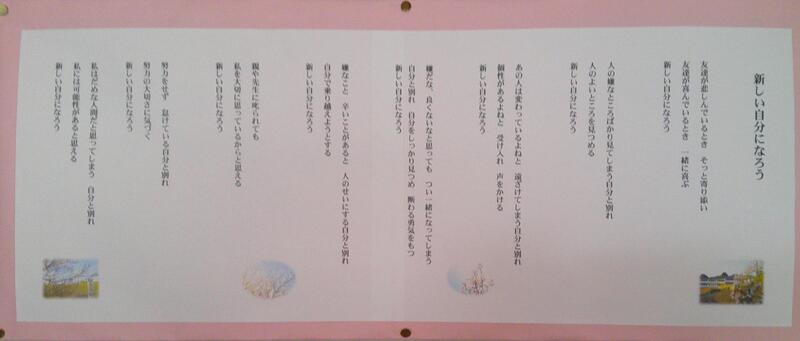 新しい自分になろう
友達が悲しんでいるとき　そっと寄り添い
友達が喜んでいるとき　一緒に喜ぶ
新しい自分になろう
人の嫌なところばかり見てしまう自分と別れ
人のよいところを見つめる
新しい自分になろう
あの人は変わっているよねと　遠ざけてしまう自分と別れ
個性があるよねと　受け入れ　声をかける
新しい自分になろう
嫌だな、良くないなと思っても　つい一緒になってしまう
自分と別れ　自分をしっかり見つめ　断わる勇気をもつ
新しい自分になろう
嫌なこと　辛いことがあると　人のせいにする自分と別れ
自分で乗り越えようとする
新しい自分になろう
親や先生に叱られても
私を大切に思っているからと思える
新しい自分になろう
努力をせず　怠けている自分と別れ
努力の大切さに気づく
新しい自分になろう
私はだめな人間だと思ってしまう　自分と別れ
私には可能性があると思える
新しい自分になろう